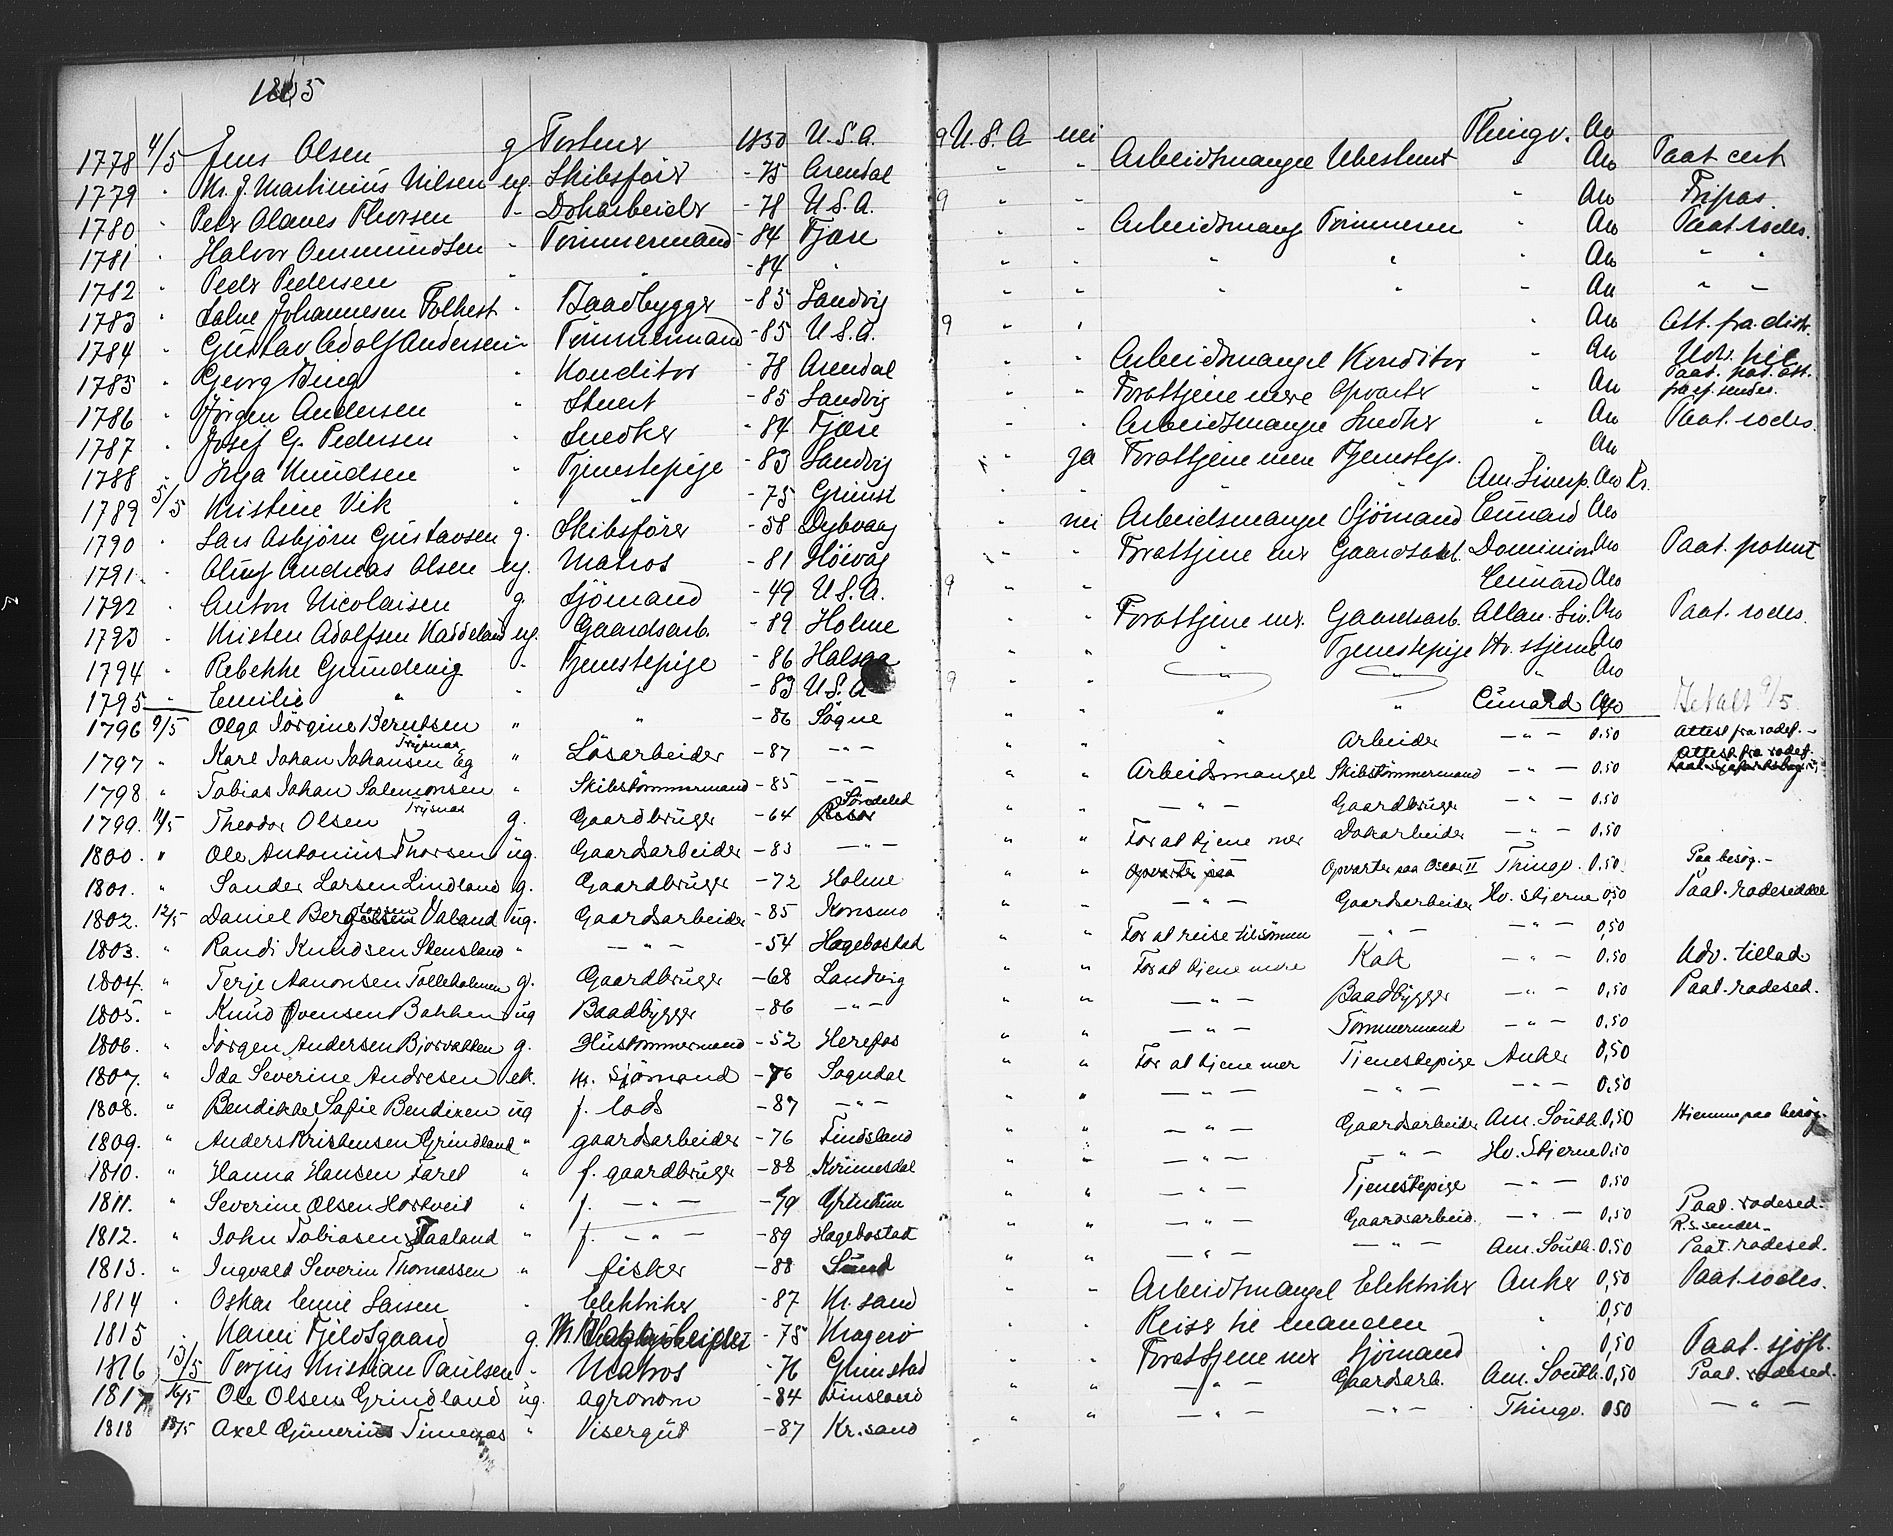 1905
1778 4/5 Jens Olsen g Tortens 1850 U.S.A. 9 U.S.A nei Thingv. Ao
1779 " M. J. Martinius Nilsen ug. Skibsförer -75 Arendal " " Arbeidsmangel Ubestemt " Ao Paat. cert
1780 " Peder Olaves Thorsen " Dokarbeider -78 U.S.A. 9 " " " Ao Fripas.
1781 " Halvor Ommundsen " Tømmermand -84 Fjære " " Arbeidsmang Tømmerm " Ao Paat. rodes.
1782 " Peder Pedersen " " -84 " " " " " " Ao " "
1783 " Salve Johannesen Folkest " Baadbygger -85 Landvig " " " " " Ao " "
1784 " Gustav Adolf Andersen " Tømmermand -85 U.S.A. 9 " " " Ao Att. fra distr.
1785 " Georg Bing " Konditor -78 Arendal " " Arbeidsmangel Konditor " Ao Udv. til
1786 " Jörgen Andersen " Stuert -85 Landvig " " Forattjene mere Opvarter " Ao Paat. pat. att. fra ef. sendes.
1787 " Josef G. Pedersen " Snedker -84 Fjære " " Arbeidsmangel Snedker " Ao Paat. rodes.
1788 " Inga Knudsen " Tjenestepige -83 Landvig " ja Forattjene mere Tjenestep. " Ao
1789 5/5 Kristine Vik " " -75 Grimst " " " Am. Liverp. Ao Kr.
1790 " Lars Asbjörn Gustavsen g. Skibsförer -58 Dybvaag " nei Arbeidsmangel Sjömand Cunard Ao
1791 " Oluf Andreas Olsen ug. Matros -81 Höivåg " " Forattjene mer Gaardsarb. Dominion Ao Paat. patent
1792 " Anton Nicolaisen g. Sjömand -49 U.S.A. 9 " " Cunard Ao
1793 " Kristen Adolfsen Kaddeland ug. Gaardsarb. -89 Holme " " Forattjene mer. Gaardsarb. Allan. Lin. Ao Paat. rodes.
1794 " Rebekke Grundevig " Tjenestepige -86 Halsaa " " " Tjenestepige Hv. stjerne Ao
1795 " Emilie " " " -83 U.S.A 9 " " " " " Ao
1796 9/5 Olga Jörgine Berntsen " " -86 Sögne " " " " Cunard Ao Betalt 9/5
1797 " Karl Johan Johansen Eg Trysnæs " Lösarbeider -87 — " — " " " Arbeider — " — 0.50 Attest fra rodef. -
1798 " Tobias Johan Salemonsen " Skibstömmermand -85 — " — " " Arbeidsmangel Skibstömmermand — " — 0.50 Attest fra rodef.
1799. 11/5 Theodor Olsen Trysnæs g. Gaardbruger -64 Söndeled " " — " — Gaardbruger — " — 0.50
1800. " Ole Antonius Thorsen ug. Gaardsarbeider -83 — " — " " For at tjene mer Dokarbeider — " — 0.50
1801. " Sander Larsen Lindland g. Gaardbruger -72 Holme " " Opvarter paa Opvarter paa Oscar II Thingv. 0.50. Paa besög. -
1802. 12/5 Daniel Valand ug. Gaardsarbeider -85 Konsmo " " — " — Gaardsarbeider Hv. stjerne 0.50 Paat. rodeseddel
1803. " Randi Knudsen Stensland " — " — -54 Hægebostad " " For at reise til sönnen — " — — " — 0.50
1804. " Terje Aanonsen Tolleholmen g. Gaardbruger -68 Landvig " " For at tjene mere Kok — " — 0.50 Udv. tillad
1805. " Knud Ovensen Bakken ug Baadbygger -86 — " — " " — " — Baadbygger — " — 0.50 Paat. rodesed.
1806. " Jörgen Andersen Bjorvatten g. Hustömmermand -52 Herefos " " — " — Tömmermand — " — 0.50
1807. " Ida Severine Andresen ek. m. Sjömand -76 Sogndal " " For at tjene mer Tjenestepige Anker 0.50
1808. " Bendikke Sofie Bendixen ug f. lods -87 — " — " " — — " — — " — 0.50
1809. " Anders Kristensen Grindland " gaardsarbeider -76 Findsland " " — " — Gaardsarbeider Am. South. 0.50 Hjemme paa besög.
1810. " Hanna Hansen Faret " f. gaardbruger -88 Kvinesdal " " — " — — " — Hv. Stjerne 0.50
1811. " Severine Olsen Hortveit " f. — " — -79 " " — " — Tjenestepige — " — 0.50
1812. " John Tobiasen Faaland " f. — " — -89 Hægebostad " " — " — Gaardsarbeid. — " — 0.50 Paat. rodesed. R.S. sendes -
1813. " Ingvald Severin Thomassen " fisker -88 Sund " " — " — — " — Am. South. 0.50 Paat. rodesed.
1814 " Oskar Emil Larsen " Elektriker -87 Kr. sand " " Arbeidsmangel Elektriker Anker 0.50 Paat. rodes.
1815 " Kari Fjeldsgaard g. -75 Kragerö " " Reiser til manden " 0.50
1816 13/5 Terjus Kristian Paulsen " Matros -76 Grimstad " " Forattjene mer Sjömand 0.50 Paat. sjöft.
1817 16/5 Ole Olsen Grindland ug. agronom -84 Finsland " " — " — Gaardsarb. Am. South. 0.50 Paat. rodesed.
1818 18/5 Axel Gunerius Timenæs " Visergut -87 Kr. sand " " — " — — " — Thingv. 0 50 — " —